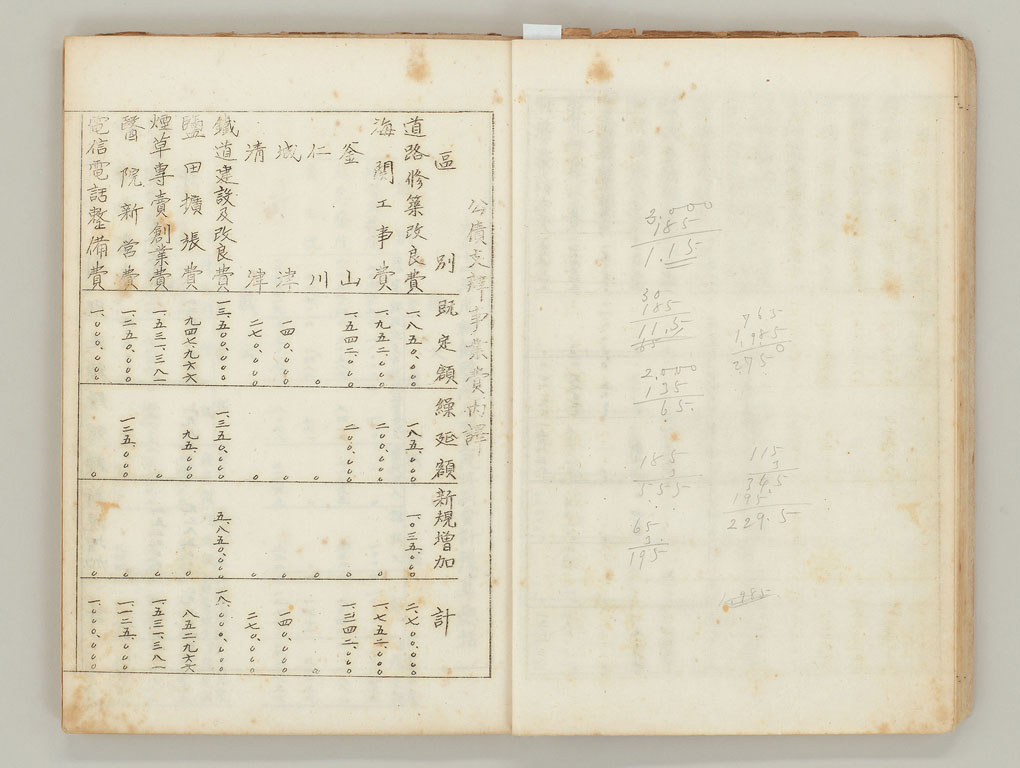 3,000
185
1.15
30
185
11.5
2.000
135
65.
185
3
5.55
65
3.
195
765
1,985
2750
115
3
345
195.
229.5
1,985
公債支辨事業費内譯
區別 既定額 繰延額 新規増加 計
道路修築改良費 一、八五〇、〇〇〇 一八五、〇〇〇 一、〇三五、〇〇〇 二、七〇〇、〇〇〇
海關工事費 一、九五二、〇〇〇 二〇〇、〇〇〇 〇 一、七五二、〇〇〇
釜山 一、五四二、〇〇〇 二〇〇、〇〇〇 〇 一、三四二、〇〇〇
仁川 〇 〇 〇 〇
城津 一四〇、〇〇〇 〇 〇 一四〇、〇〇〇
清津 二七〇、〇〇〇 〇 〇 二七〇、〇〇〇
鐵道建設及改良費 一三、五〇〇、〇〇〇 一、三五〇、〇〇〇 五、八五〇、〇〇〇 一八、〇〇〇、〇〇〇
鹽田擴張費 九四七、九六六 九五、〇〇〇 〇 八五二、九六六
煙草專賣創業費 一、五三一、三八一 〇 〇 一、五三一、三八一
醫院新營費 一、二五〇、〇〇〇 一二五、〇〇〇 〇 一、一二五、〇〇〇
電信電話整備費 一、〇〇〇、〇〇〇 〇 〇 一、〇〇〇、〇〇〇